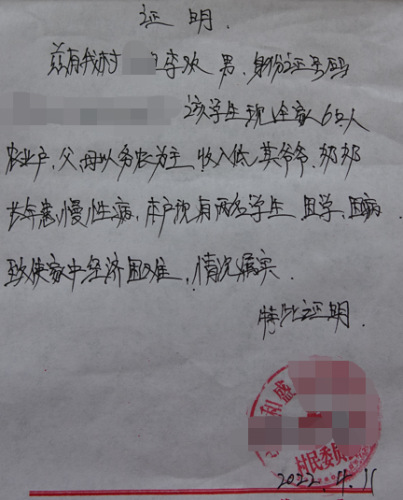 证明.
兹有我村李欢 男.身份证号码
该学生现全家6口人
农业户,父、母以务农为主,收入低,其爷爷.奶奶
长年患慢性病,本户现有两名学生 因学.因病.
致使家中经济困难,情况属实.
特此证明.
和盛
村民委员
2022.4.11